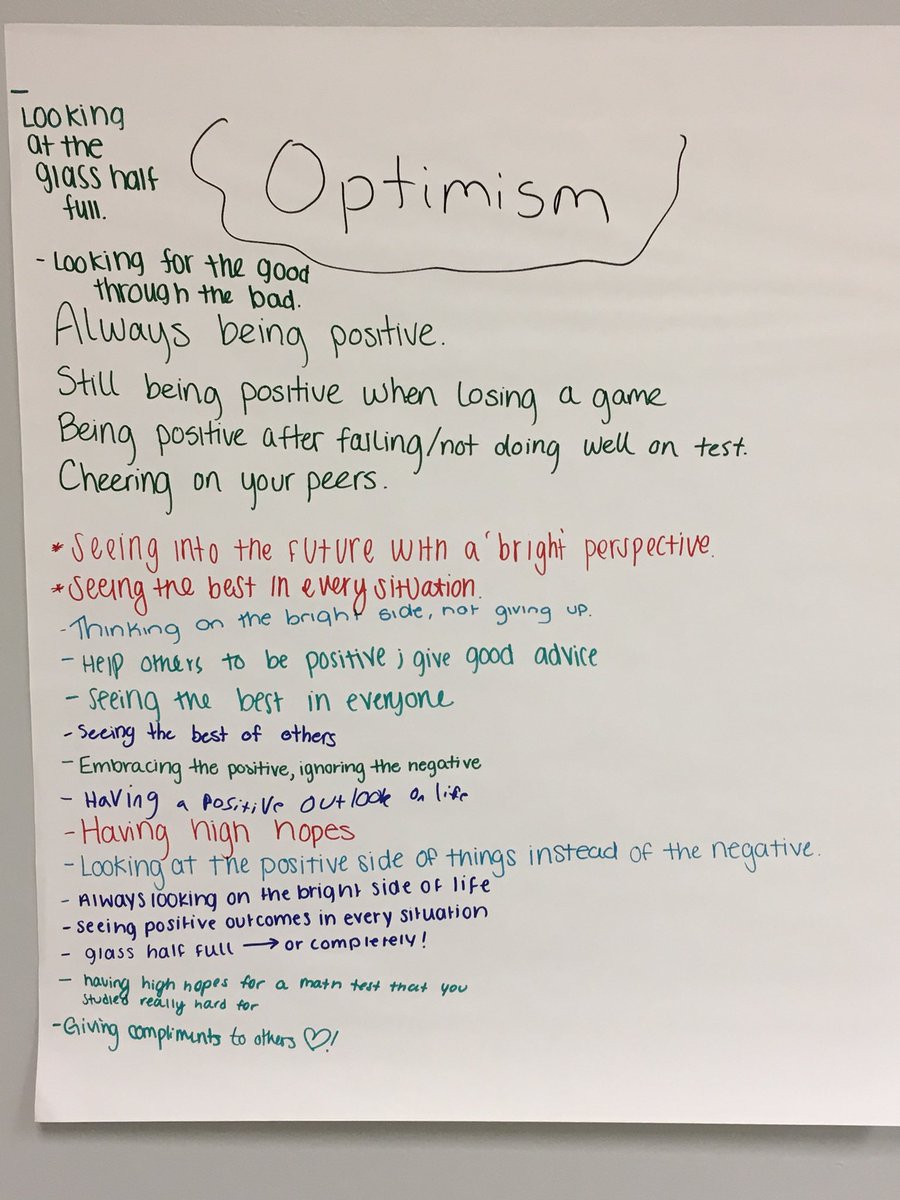 Optimism
- Looking
at the
glass half
full.
- Looking for the good
through the bad.
Always being positive.
Still being positive when losing a game
Being positive after failing/not doing well on test.
Cheering on your peers.
* Seeing into the future with a 'bright' perspective.
* Seeing the best in every situation.
- Thinking on the bright side, not giving up.
- Help others to be positive; give good advice
- Seeing the best in everyone
- Seeing the best of others
- Embracing the positive, ignoring the negative
- Having a positive outlook on life
- Having high hopes
- Looking at the positive side of things instead of the negative.
- Always looking on the bright side of life
- seeing positive outcomes in every situation
- glass half full → or completely!
- having high hopes for a math test that you
studied really hard for
- Giving compliments to others ♡!